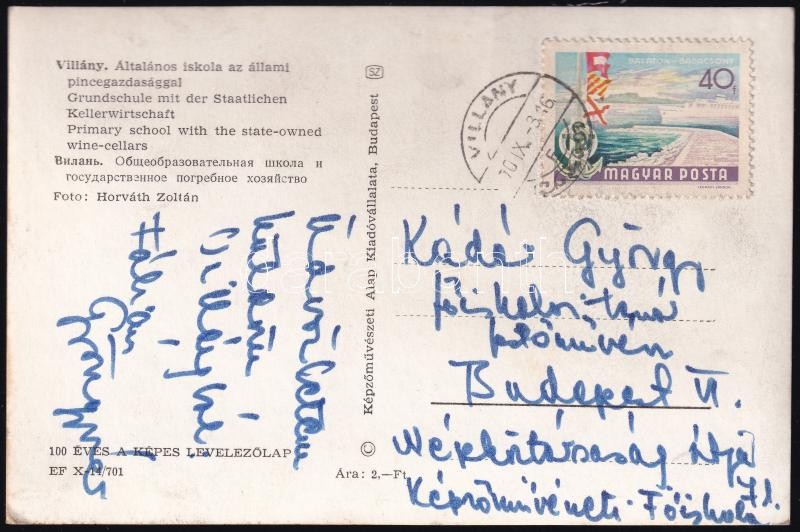 Villány. Általános iskola az állami
pincegazdasággal
Grundschule mit der Staatlichen
Kellerwirtschaft
Primary school with the state-owned
wine-cellars
Вилань. Общеобразовательная школа и
государственное погребное хозяйство
Foto: Horváth Zoltán
100 ÉVES A KÉPES LEVELEZŐLAP
EF X-14/701
Ára: 2,—Ft
SZ
Képzőművészeti Alap Kiadóvállalata, Budapest
BALATON - BADACSONY
40f
MAGYAR POSTA
VILLÁNY
Kádár György
főiskolai tanár
festőművész
Budapest VI.
Népköztársaság útja
71.
Képzőművészeti Főiskola
Villány
darabanth